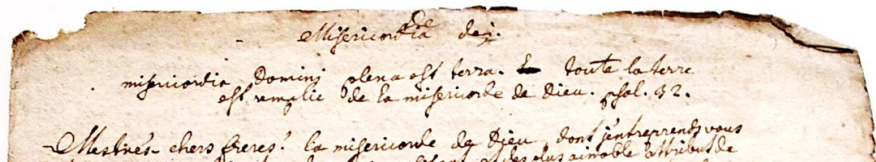 de
Misericordia dei.
misericordia Domini plena est terra. toute la terre
est remplie de la misericorde de Dieu. psal. 32.
Mes tres chers freres! la misericorde de Dieu, dont j'entreprends vous
plus aimable attribus de